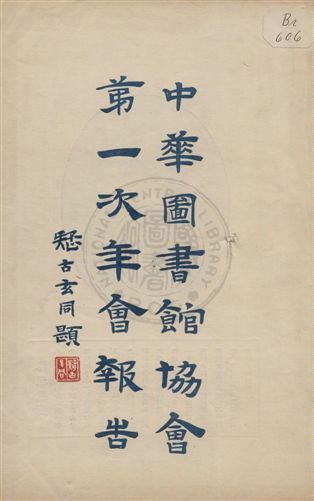 中華圖書館協會
第一次年會報告
疑古玄同題
Br
606
NATIONAL CENTRAL LIBRARY